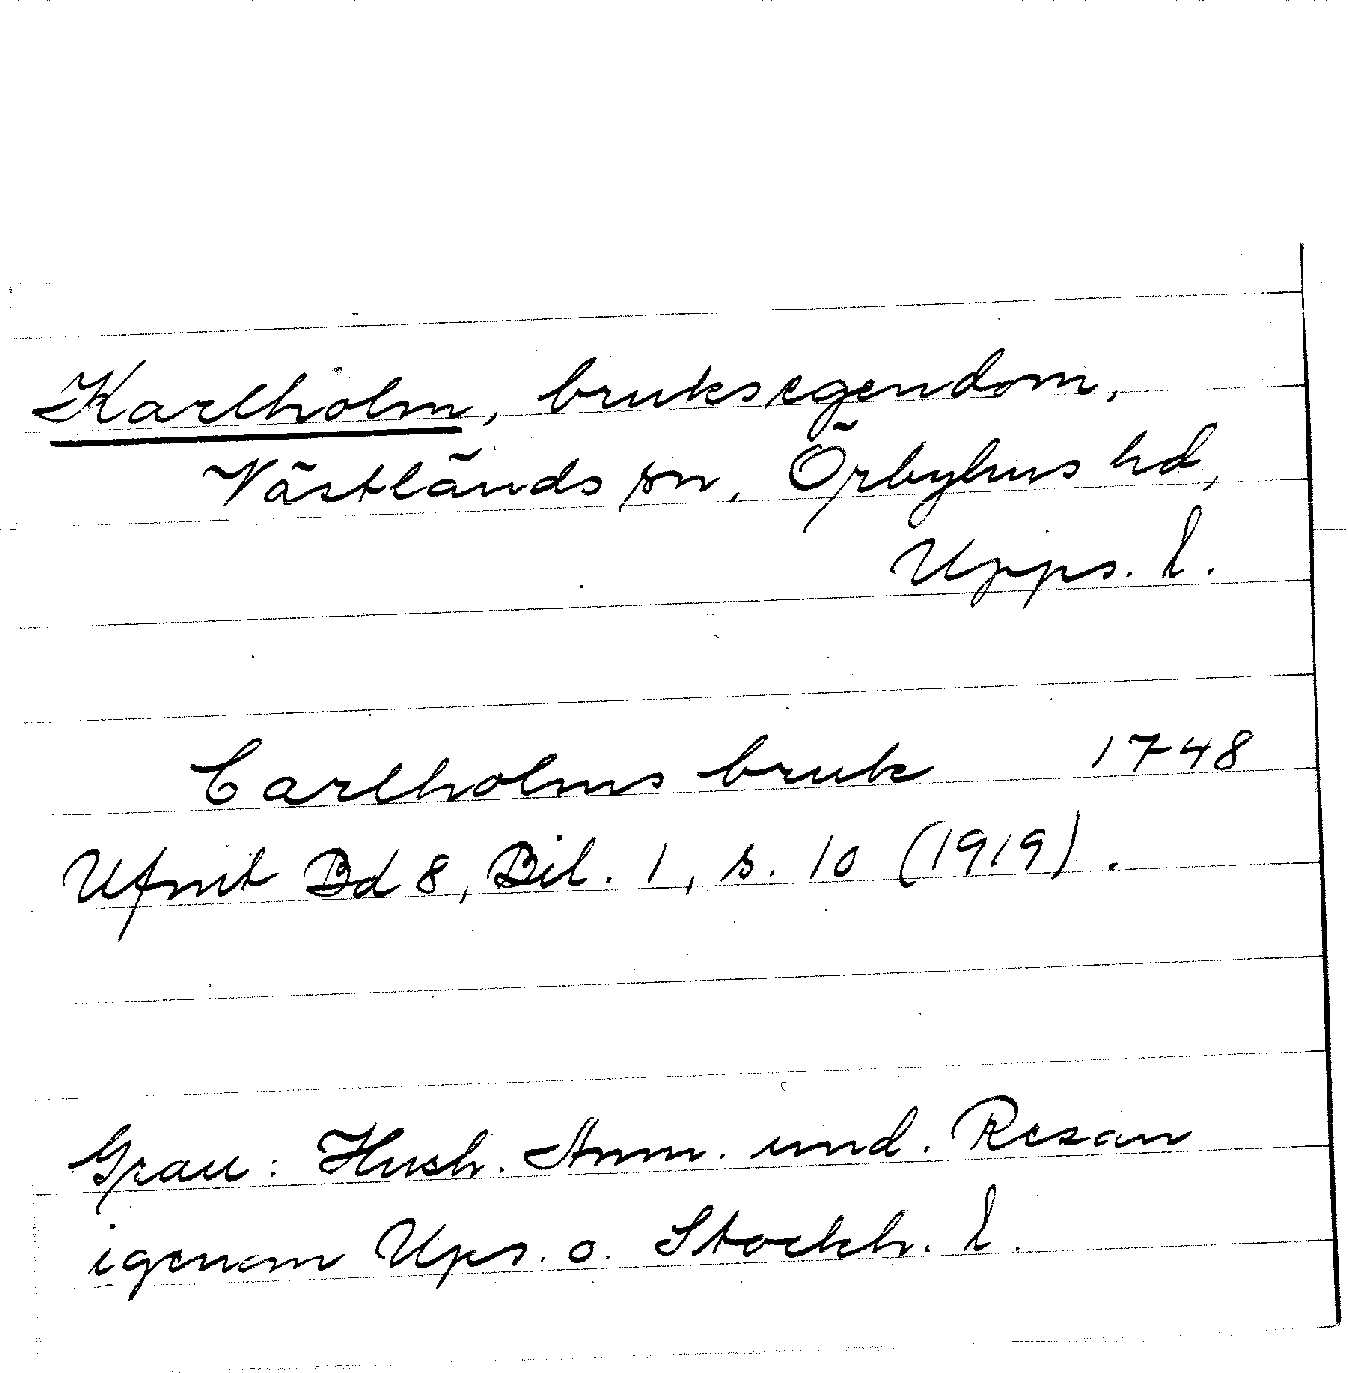 Karlholm, bruksegendom,
Västlands sn, Örbyhus hd,
Upps. l.
Carlholms bruk 1748
Ufmt Bd 8, Bil. 1, s. 10 (1919).
Grau: Hush. Anm. und. Resan
igenom Ups. o. Stockh. l.